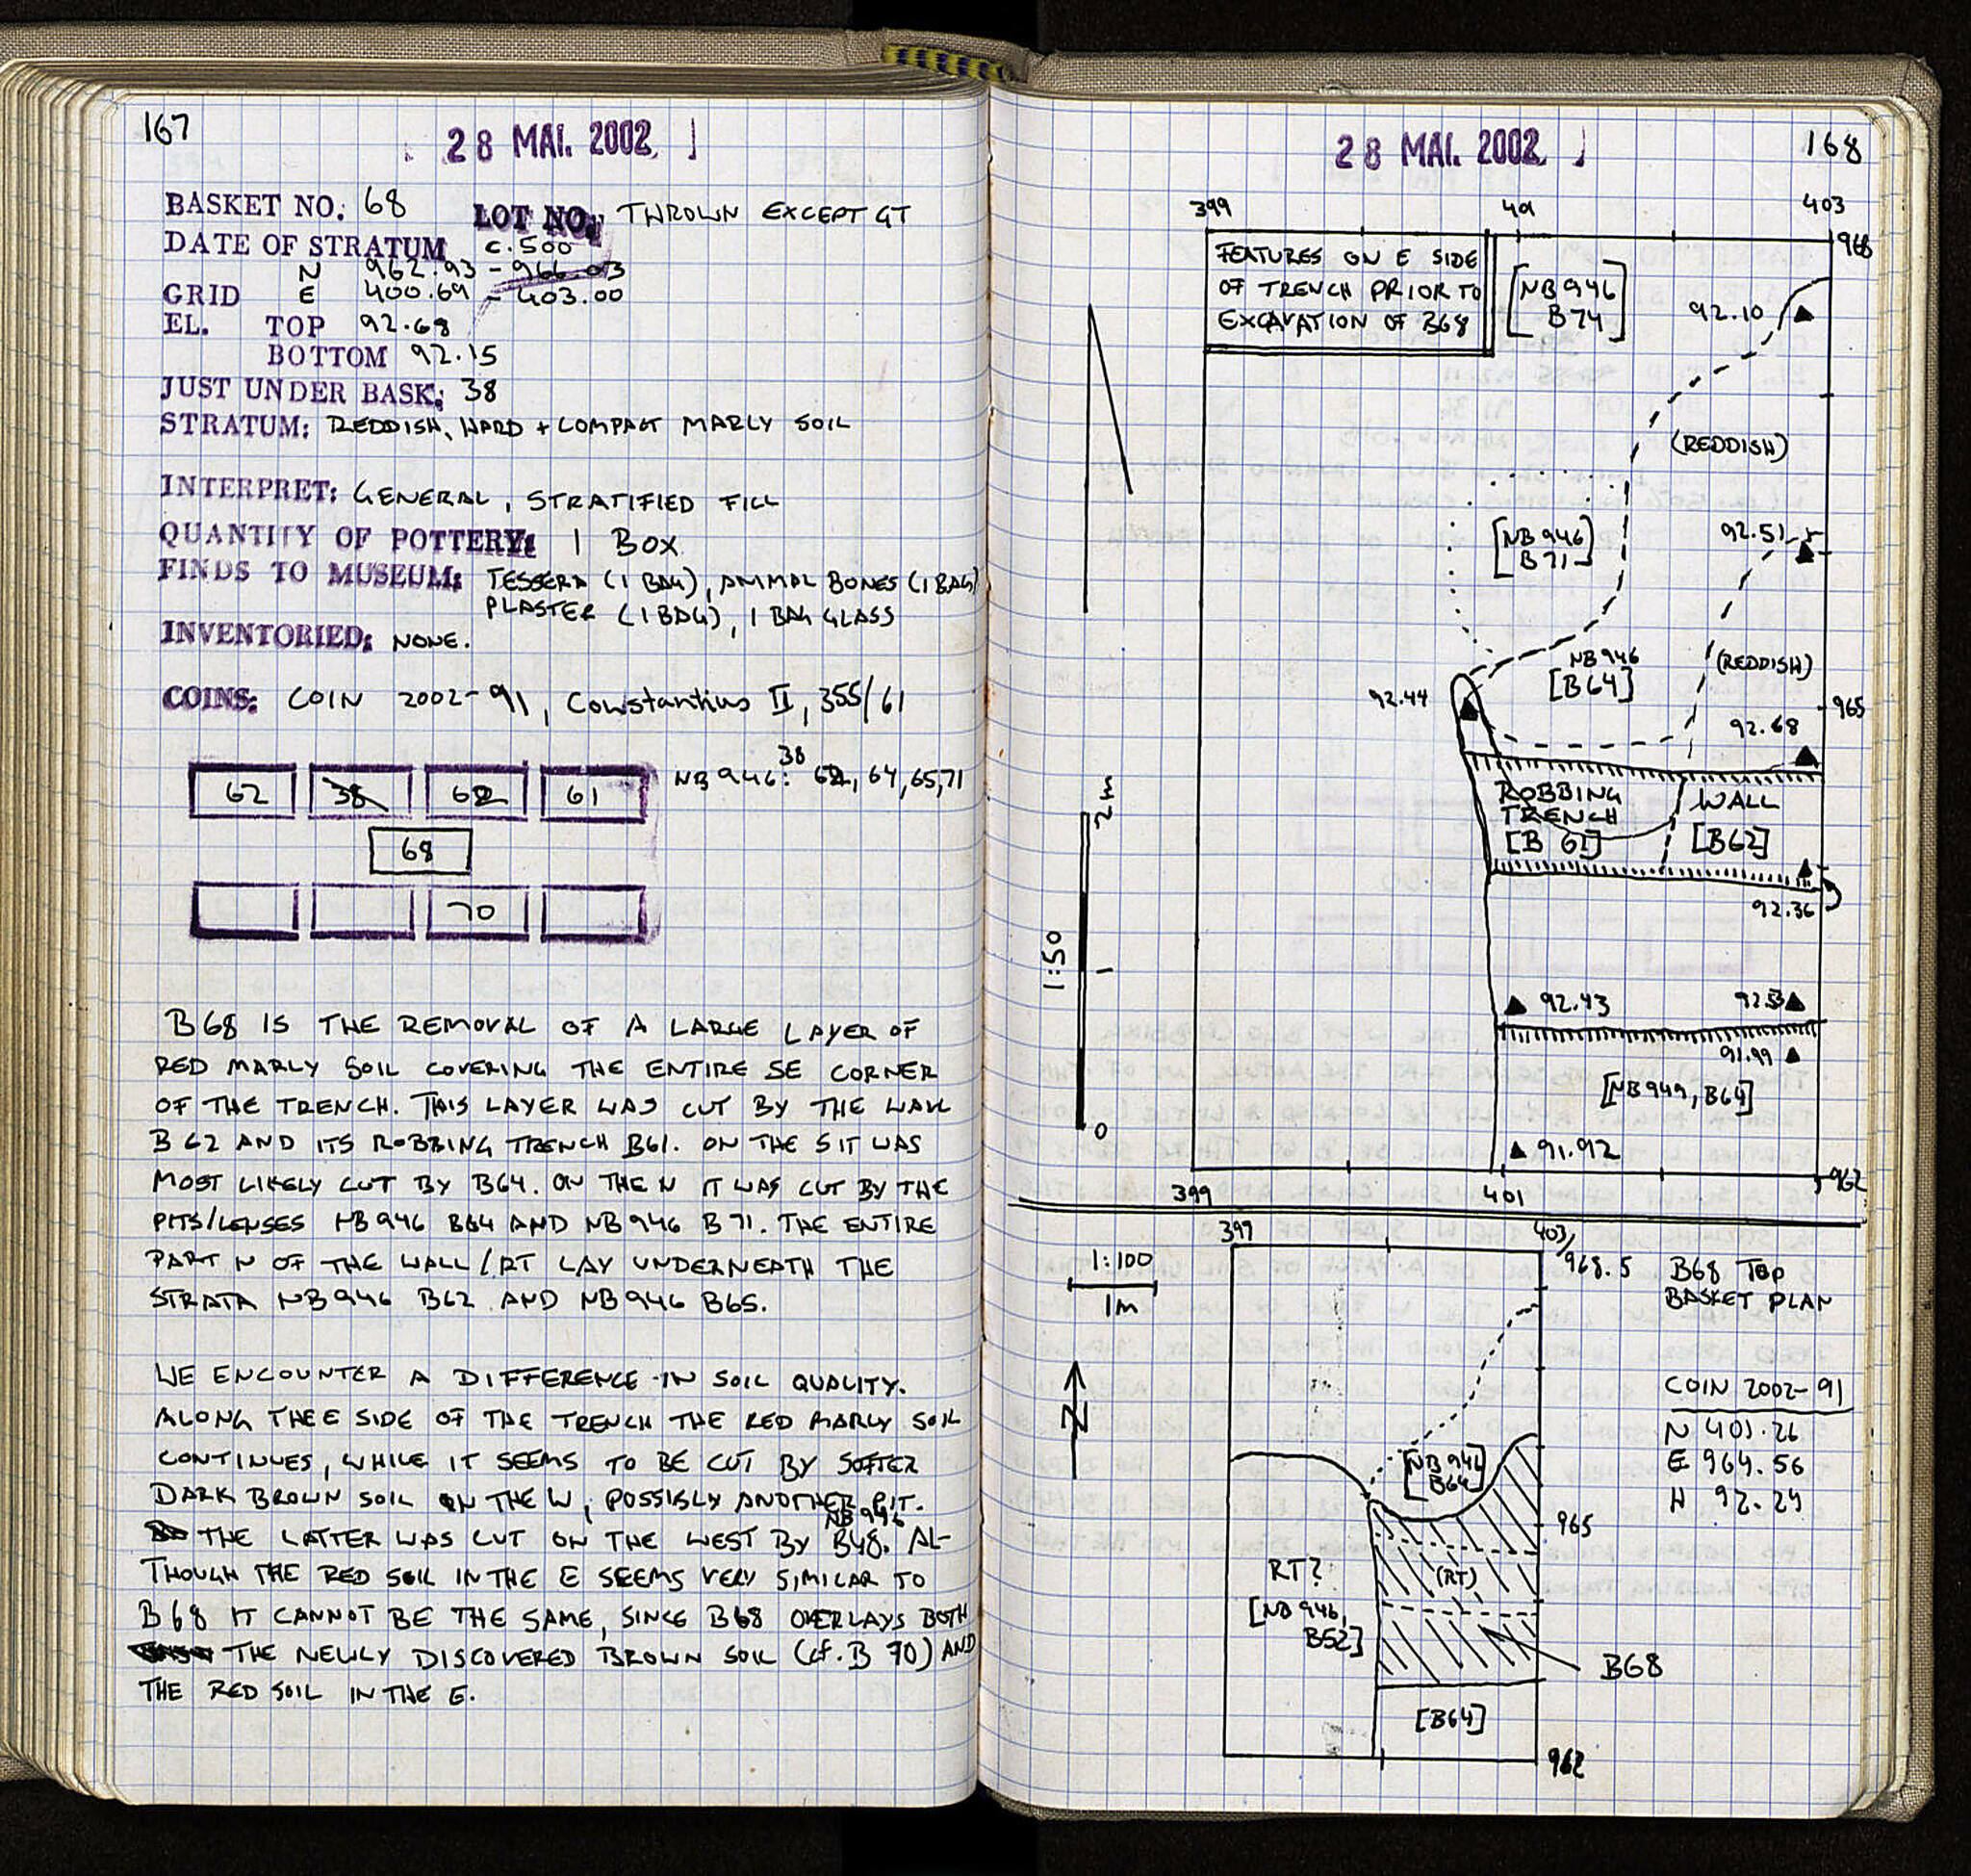 167
28 MAI. 2002
BASKET NO. 68 LOT NO. THROWN EXCEPT GT
DATE OF STRATUM c. 500
N 962.93 - 966.03
GRID E 400.69 - 403.00
EL. TOP 92.68
BOTTOM 92.15
JUST UNDER BASK: 38
STRATUM: REDDISH, HARD + COMPACT MARLY SOIL
INTERPRET: GENERAL, STRATIFIED FILL
QUANTITY OF POTTERY: 1 BOX
FINDS TO MUSEUM: TESSERA (1 BAG), ANIMAL BONES (1 BAG)
PLASTER (1 BAG), 1 BAG GLASS
INVENTORIED: NONE.
COINS: COIN 2002-91, Constantius II, 355/61
62 38 62 61 NB 946: 38 62, 64, 65, 71
68
70
B68 IS THE REMOVAL OF A LARGE LAYER OF
RED MARLY SOIL COVERING THE ENTIRE SE CORNER
OF THE TRENCH. THIS LAYER WAS CUT BY THE WALL
B62 AND ITS ROBBING TRENCH B61. ON THE S IT WAS
MOST LIKELY CUT BY B64. ON THE N IT WAS CUT BY THE
PITS/LENSES NB946 B64 AND NB946 B71. THE ENTIRE
PART N OF THE WALL/RT LAY UNDERNEATH THE
STRATA NB946 B62 AND NB946 B65.
WE ENCOUNTER A DIFFERENCE IN SOIL QUALITY.
ALONG THE E SIDE OF THE TRENCH THE RED MARLY SOIL
CONTINUES, WHILE IT SEEMS TO BE CUT BY SOFTER
DARK BROWN SOIL ON THE W, POSSIBLY ANOTHER PIT.
THE LATTER WAS CUT ON THE WEST BY NB946 B48. AL-
THOUGH THE RED SOIL IN THE E SEEMS VERY SIMILAR TO
B68 IT CANNOT BE THE SAME, SINCE B68 OVERLAYS BOTH
THE NEWLY DISCOVERED BROWN SOIL (cf. B 70) AND
THE RED SOIL IN THE E.
28 MAI. 2002
168
399 401 403
968
FEATURES ON E SIDE
OF TRENCH PRIOR TO
EXCAVATION OF B68
[NB 946
B74]
92.10
(REDDISH)
[NB 946
B71]
92.51
NB 946
[B64]
(REDDISH)
92.44
965
92.68
ROBBING
TRENCH
[B 61]
WALL
[B62]
92.36
2m
1
0
1:50
92.43
91.99
[NB 949, B64]
91.92
962
399 401
397 403/
968.5
1:100
1m
B68 TOP
BASKET PLAN
N
COIN 2002-91
N 401.26
E 964.56
H 92.24
[NB 946
B64]
965
RT?
[NB 946,
B52]
(RT)
B68
[B64]
962